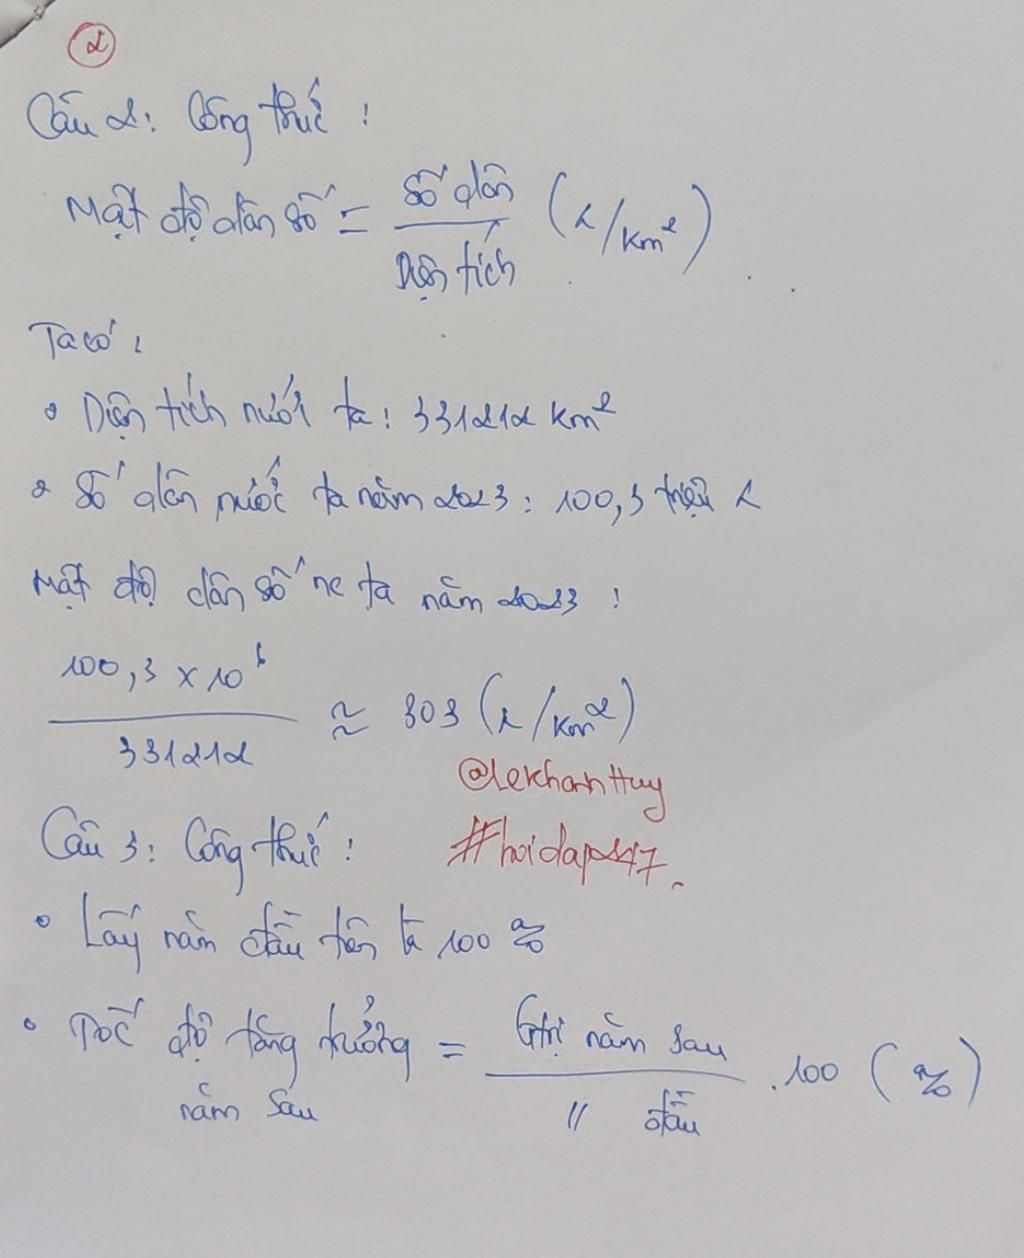 2
Câu 2: Công thức:
Mật độ dân số = Số dân / Diện tích (ng/km²)
Ta có:
• Diện tích nước ta: 331212 km²
• Số dân nước ta năm 2023: 100,3 triệu
Mật độ dân số nc ta năm 2023:
100,3 x 10⁶ / 331212 ≈ 303 (/km²)
@LekhanhHuy
#hoidap247.
Câu 3: Công thức:
• Lấy năm đầu tiên là 100 %
• Tốc độ tăng trưởng năm sau = Gtrị năm sau / " đầu . 100 (%)